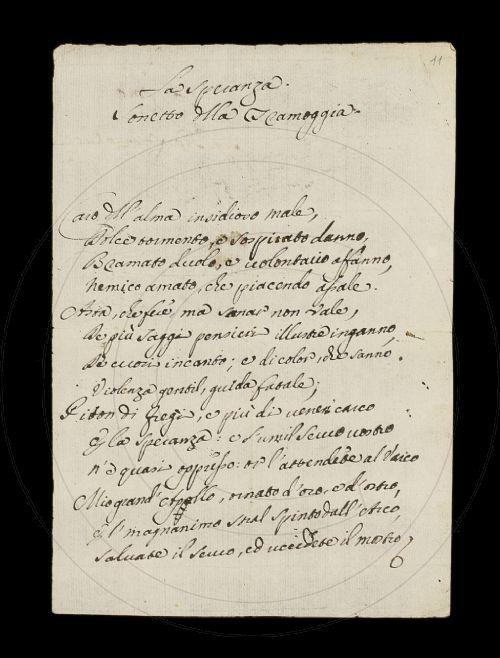 11
La Speranza.
Sonetto dlla Tramoggia.
Caro dll'alma insidioso male,
Dolce tormento, e sospirato danno,
Bramato duolo, e volontario affanno,
Nemico amato, che piacendo assale.
Asta, che fiè ma sanar non vale,
De più saggi pensieri illustre inganno,
De cuori incanto; e di color, che sanno
Violenza gentil, guida fatale;
Piton di fregi, e più di veneri carco
È la Speranza: e l'umil Servo vostro
n'è quasi oppresso: or l'attendete al Varco
Mio grand' Apollo, ornato d'oro, e d'ostro,
E l' magnanimo stral spinto dall'Arco,
Salvate il Servo, ed uccidete il mostro